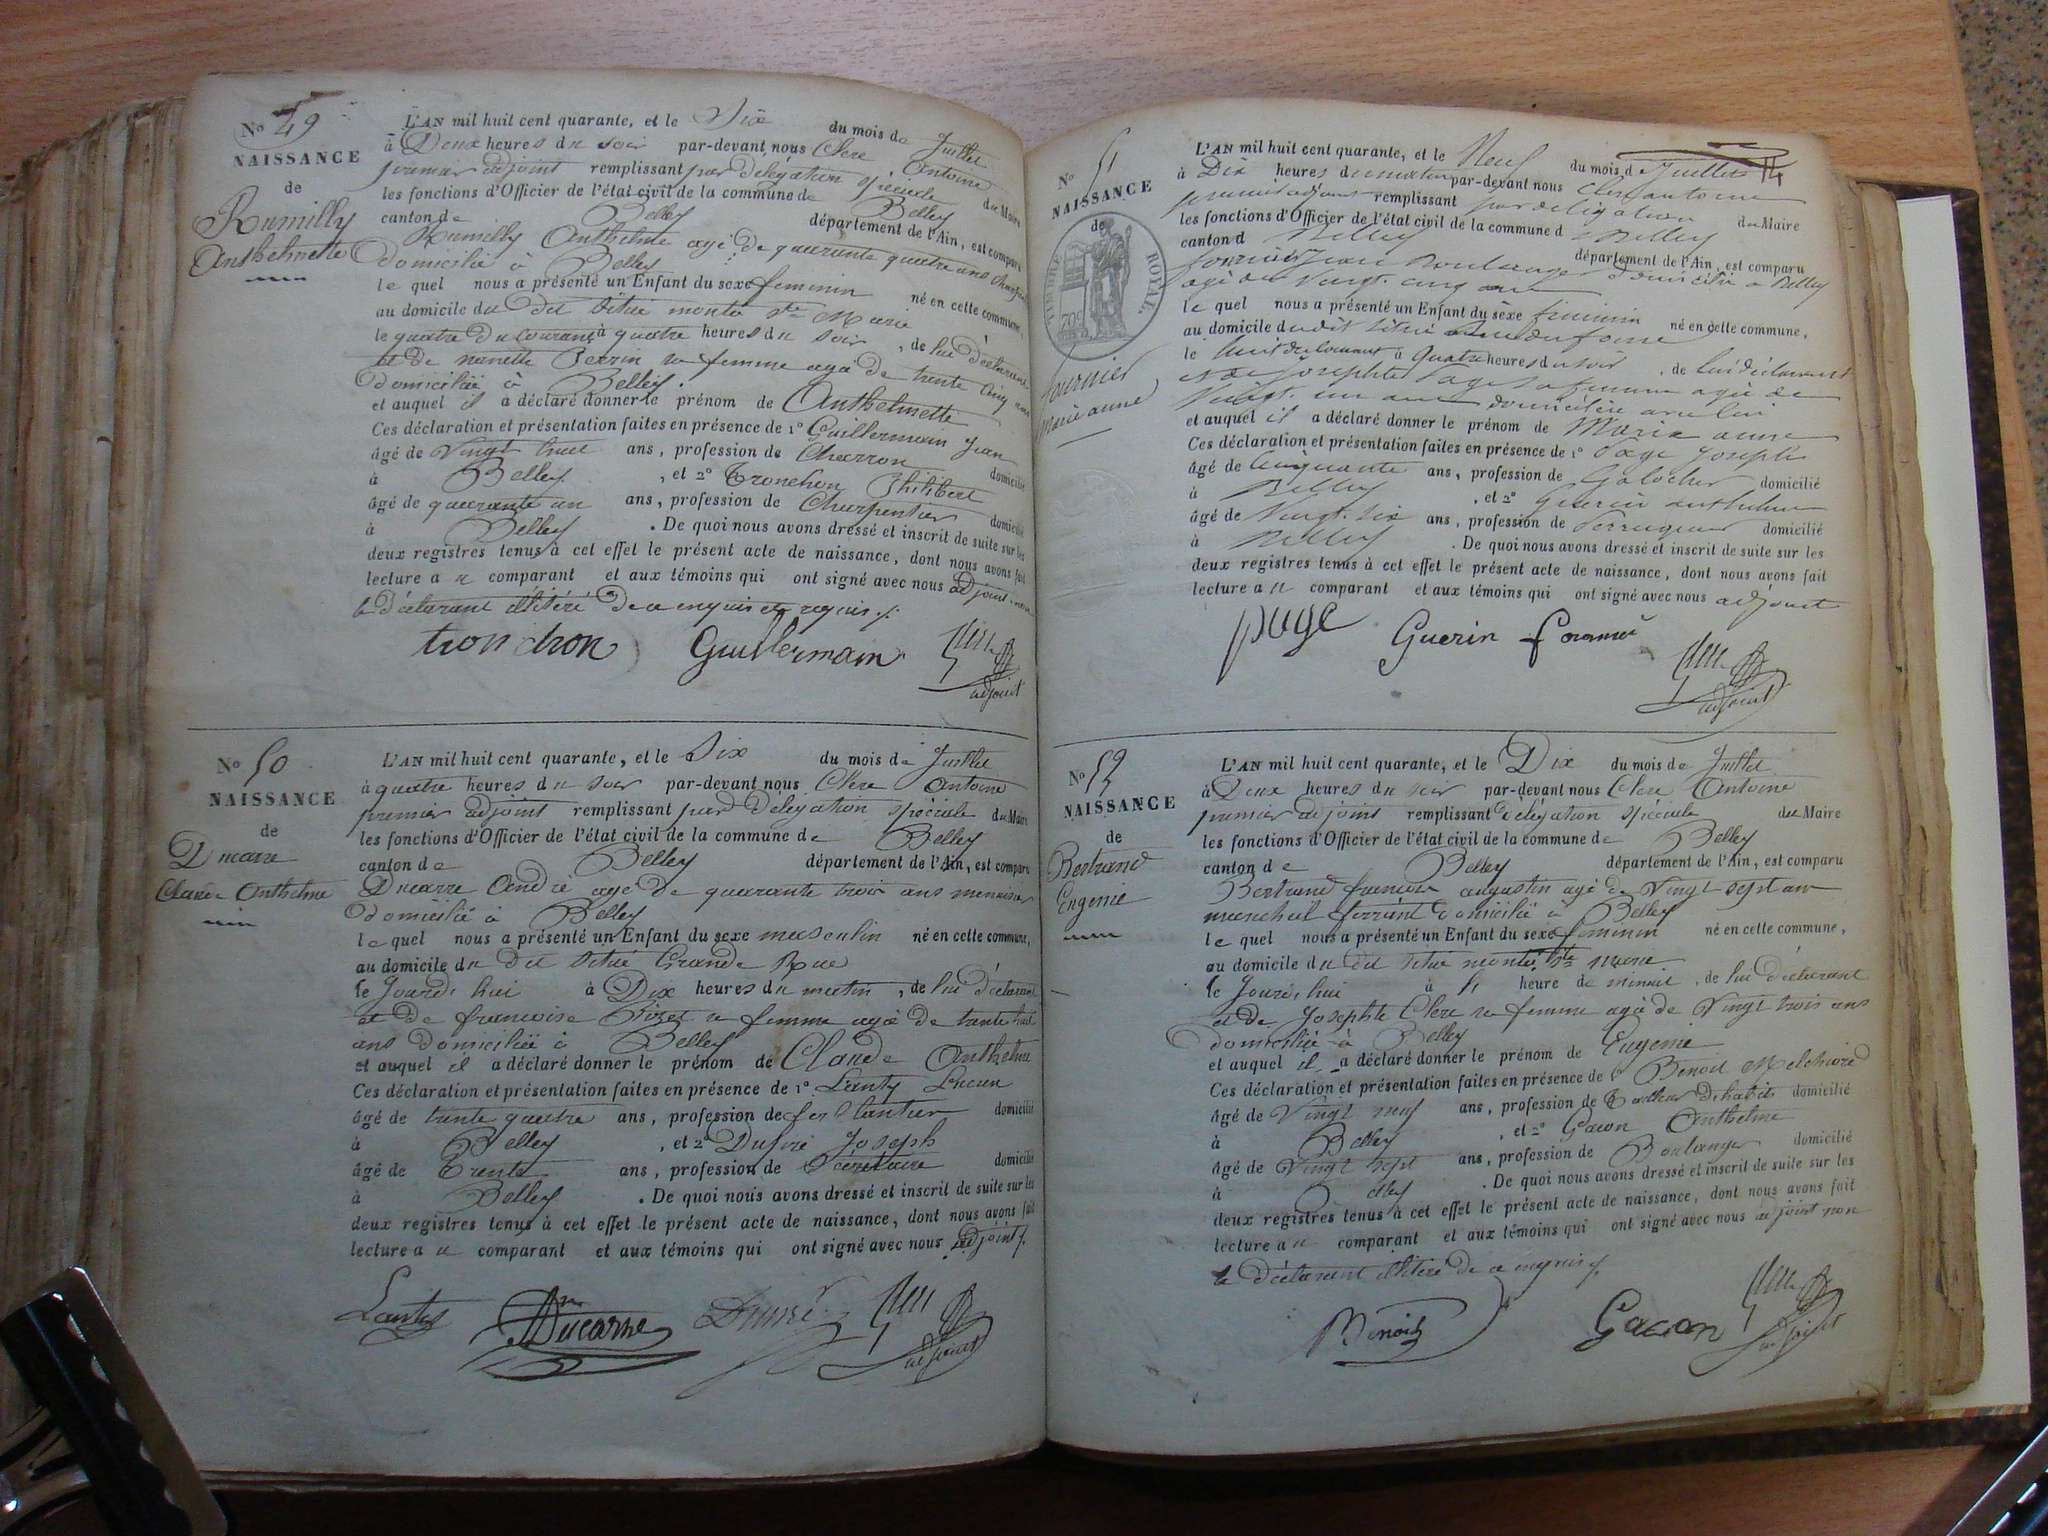 No 49
NAISSANCE
de
Rumilly
Anthelmette
L'AN mil huit cent quarante, et le Six du mois de Juillet
à Deux heures du soir par-devant nous Clerc Antoine
premier adjoint remplissant par délégation spéciale du Maire
les fonctions d'Officier de l'état civil de la commune de Belley
canton de Belley département de l'Ain, est comparu
Rumilly Anthelme agé de quarante quatre ans
domicilié à Belley
le quel nous a présenté un Enfant du sexe feminin né en cette commune,
au domicile du dit Situé montée Ste Marie
le quatre du Courant à quatre heures du soir, de lui déclarant
et de nanette Perrin sa femme agé de trente Cinq ans
domiciliée à Belley.
et auquel il a déclaré donner le prénom de Anthelmette
Ces déclaration et présentation faites en présence de 1° Guillermain Jean
âgé de Vingt huit ans, profession de Charron domicilié
à Belley, et 2° Tronchon Philibert
âgé de quarante un ans, profession de Charpentier domicilié
à Belley. De quoi nous avons dressé et inscrit de suite sur les
deux registres tenus à cet effet le présent acte de naissance, dont nous avons fait
lecture au comparant et aux témoins qui ont signé avec nous adjoint non
le déclarant illitéré de ce enquis et requis ./.
tronchon Guillermain Clerc
adjoint
No 50
NAISSANCE
de
Ducarre
Claude Anthelme
L'AN mil huit cent quarante, et le Six du mois de Juillet
à quatre heures du soir par-devant nous Clerc Antoine
premier adjoint remplissant par délégation spéciale du Maire
les fonctions d'Officier de l'état civil de la commune de Belley
canton de Belley département de l'Ain, est comparu
Ducarre André agé de quarante trois ans menuisier
domicilié à Belley
le quel nous a présenté un Enfant du sexe masculin né en cette commune,
au domicile du dit Situé Grande Rue
le Jourd'hui à Dix heures du matin, de lui déclarant
et de francoise sa femme agé de trente huit
ans domiciliée à Belley
et auquel il a déclaré donner le prénom de Claude Anthelme
Ces déclaration et présentation faites en présence de 1° Lanty Lucien
âgé de trente quatre ans, profession de ferblantier domicilié
à Belley, et 2° Joseph
âgé de Trente ans, profession de Sécrétaire domicilié
à Belley. De quoi nous avons dressé et inscrit de suite sur les
deux registres tenus à cet effet le présent acte de naissance, dont nous avons fait
lecture au comparant et aux témoins qui ont signé avec nous adjoint ./.
Lanty Ducarre Clerc
adjoint
14
No 51
NAISSANCE
de
TIMBRE ROYAL
70c
fournier
Marie anne
L'AN mil huit cent quarante, et le Neuf du mois de Juillet
à Dix heures du matin par-devant nous Clerc antoine
premier adjoint remplissant par deligation du Maire
les fonctions d'Officier de l'état civil de la commune d Belley
canton d Belley département de l'Ain, est comparu
fournier Jean Boulanger domicilié a Belley
agé de Vingt cinq ans
le quel nous a présenté un Enfant du sexe feminin né en cette commune,
au domicile du dit situé
le huit du courant à Quatre heures du soir, de lui déclarant
et de Josephte Page sa femme agée de
Vingt un ans domiciliée avec lui
et auquel il a déclaré donner le prénom de Marie anne
Ces déclaration et présentation faites en présence de 1° Page Joseph
âgé de Cinquante ans, profession de Galocher domicilié
à Belley, et 2° Guerin anthelme
âgé de Vingt six ans, profession de Perruquier domicilié
à Belley. De quoi nous avons dressé et inscrit de suite sur les
deux registres tenus à cet effet le présent acte de naissance, dont nous avons fait
lecture au comparant et aux témoins qui ont signé avec nous adjoint
page Guerin fournier Clerc
adjoint
No 52
NAISSANCE
de
Bertrand
Eugenie
L'AN mil huit cent quarante, et le Dix du mois de Juillet
à Deux heures du soir par-devant nous Clerc Antoine
premier adjoint remplissant délégation spéciale du Maire
les fonctions d'Officier de l'état civil de la commune de Belley
canton de Belley département de l'Ain, est comparu
Bertrand francois augustin agé de Vingt sept ans
marechal ferrant domicilié à Belley
le quel nous a présenté un Enfant du sexe feminin né en cette commune,
au domicile du dit situé montée Ste marie
le Jourd'hui à heure de minuit, de lui déclarant
et de Josephte Clerc sa femme agée de Vingt trois ans
domiciliée à Belley
et auquel il a déclaré donner le prénom de Eugenie
Ces déclaration et présentation faites en présence de 1° Benoit Melchiord
âgé de Vingt neuf ans, profession de Tailleur d'habits domicilié
à Belley, et 2° Gacon Anthelme
âgé de Vingt sept ans, profession de Boulanger domicilié
à Belley. De quoi nous avons dressé et inscrit de suite sur les
deux registres tenus à cet effet le présent acte de naissance, dont nous avons fait
lecture au comparant et aux témoins qui ont signé avec nous adjoint non
le déclarant illitéré de ce enquis ./.
Benoit Gacon Clerc
adjoint